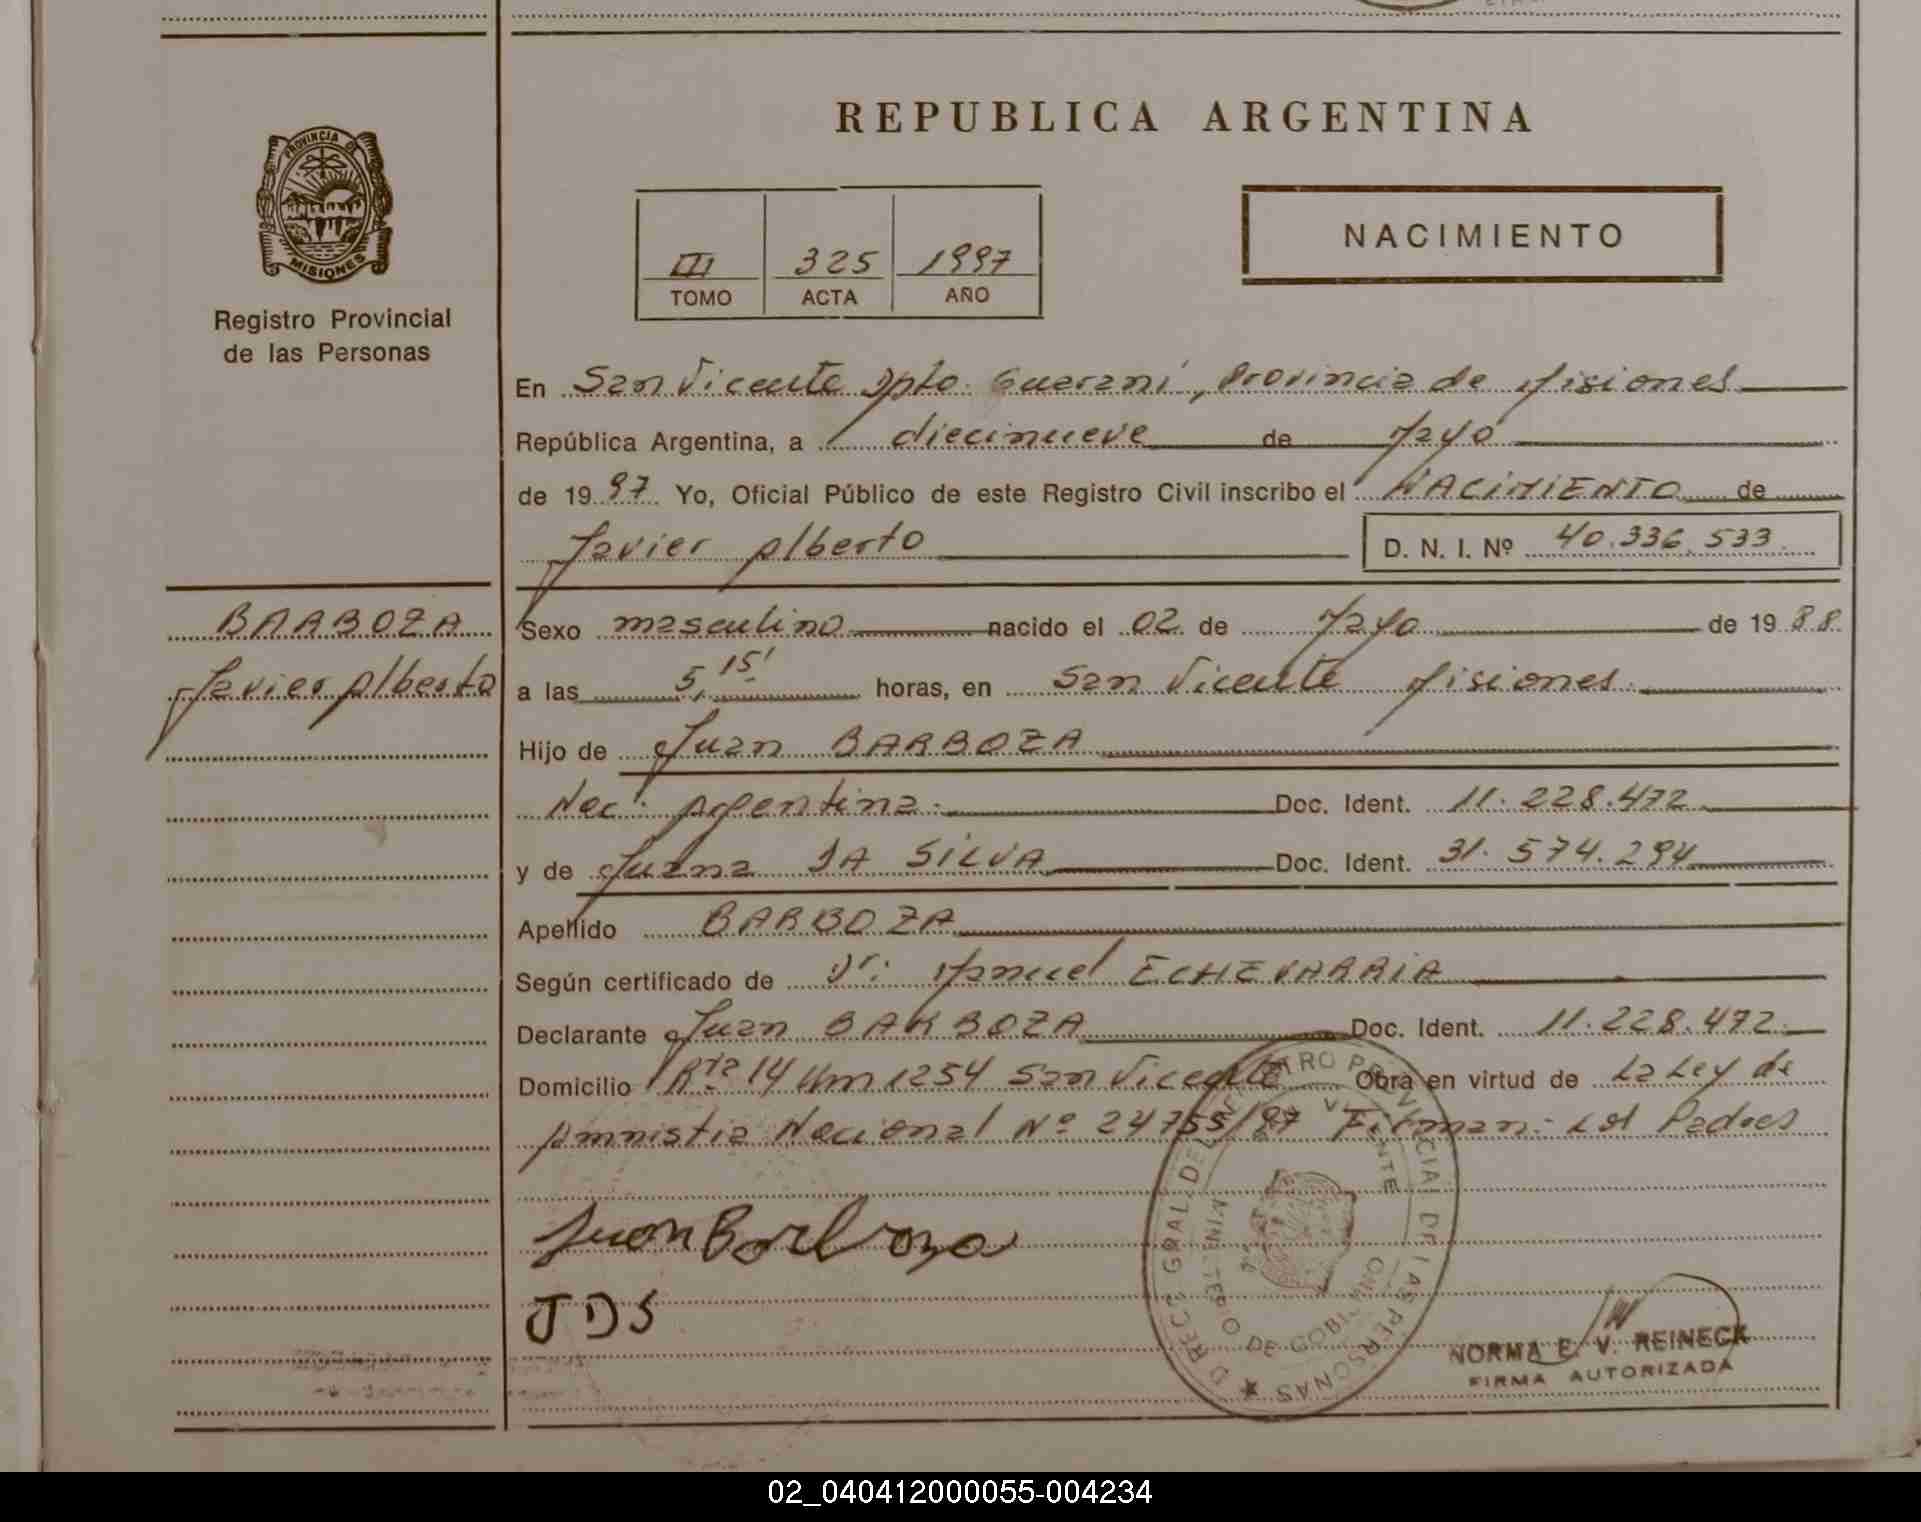 REPUBLICA ARGENTINA
PROVINCIA DE
MISIONES
Registro Provincial
de las Personas
III 325 1997
TOMO ACTA AÑO
NACIMIENTO
En San Vicente Dpto. Guaraní, Provincia de Misiones
República Argentina, a diecinueve de Mayo
de 1997 Yo, Oficial Público de este Registro Civil inscribo el NACIMIENTO de
Javier Alberto D. N. I. Nº 40.336.533
BARBOZA
Javier Alberto
Sexo masculino nacido el 02 de Mayo de 1988
a las 5,15' horas, en San Vicente Misiones.
Hijo de Juan BARBOZA
Nac. Argentina. Doc. Ident. 11.228.472
y de Juana DA SILVA Doc. Ident. 31.574.294
Apellido BARBOZA
Según certificado de Dr. Manuel ECHEVARRIA
Declarante Juan BARBOZA Doc. Ident. 11.228.472.
Domicilio Rta 14 Km 1254 San Vicente Obra en virtud de La Ley de
Amnistia Nacional Nº 24755/97 Firman: Los Padres
Juan Barboza
JDS
DIRECC. GRAL. DEL REGISTRO PROVINCIAL DE LAS PERSONAS
MINISTERIO DE GOBIERNO
NORMA E. V. REINECK
FIRMA AUTORIZADA
02_040412000055-004234